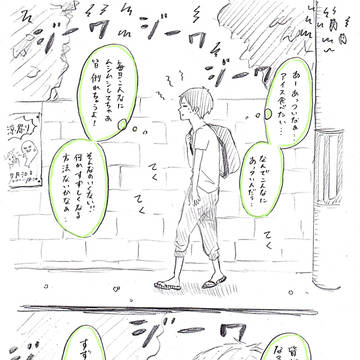 ジーワ
ジーワ
あーあっついなぁ
アイス食べたい…
なんでこんなに
あっついんだろ…
毎日こんなに
ムシムシしてちゃあ
皆倒れちゃうよ!
そんなのいくない!!
何かすずしくなる
方法ないかなぁ…
てく
てく
てく
ジーワ
すず